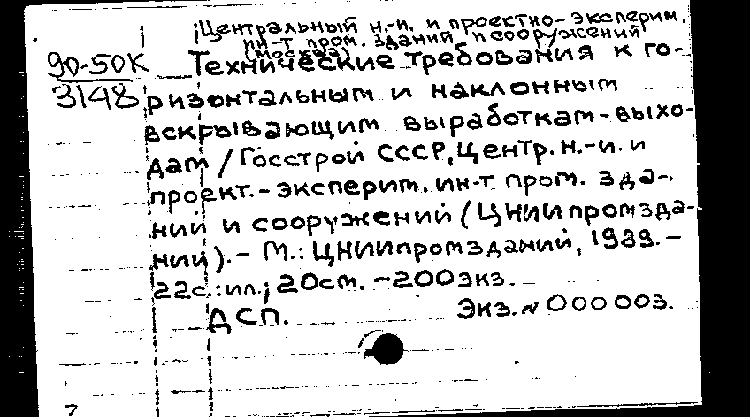 Центральный н.-и. и проектно-эксперим.
ин-т пром. зданий и сооружений
(Москва)
90-50К Технические требования к го-
3148 ризонтальным и наклонным
вскрывающим выработкам-выхо-
дам / Госстрой СССР, Центр. н.-и. и
проект.-эксперим. ин-т пром. зда-
ний и сооружений (ЦНИИпромзда-
ний). - М.: ЦНИИпромзданий, 1989. -
22с.: ил.; 20см. - 200экз.
ДСП. Экз. № 000 003.
7